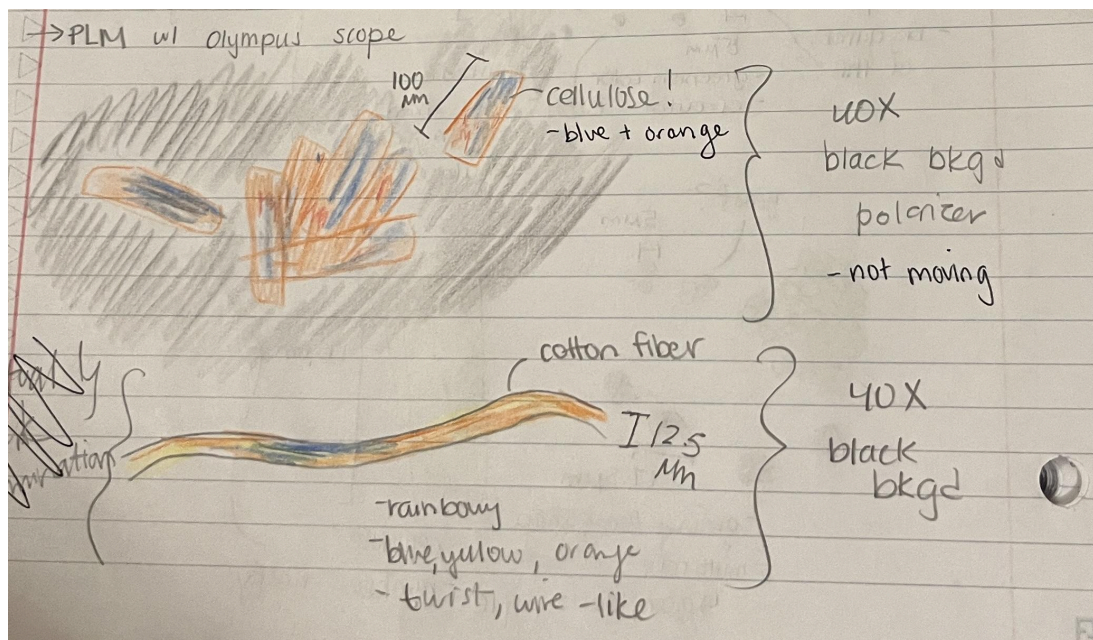 →PLM w/ Olympus scope
100
µm
cellulose!
-blue + orange
40X
black bkgd
polarizer
-not moving
cotton fiber
I 12.5
µm
40X
black
bkgd
-rainbowy
-blue, yellow, orange
- twist, wire -like